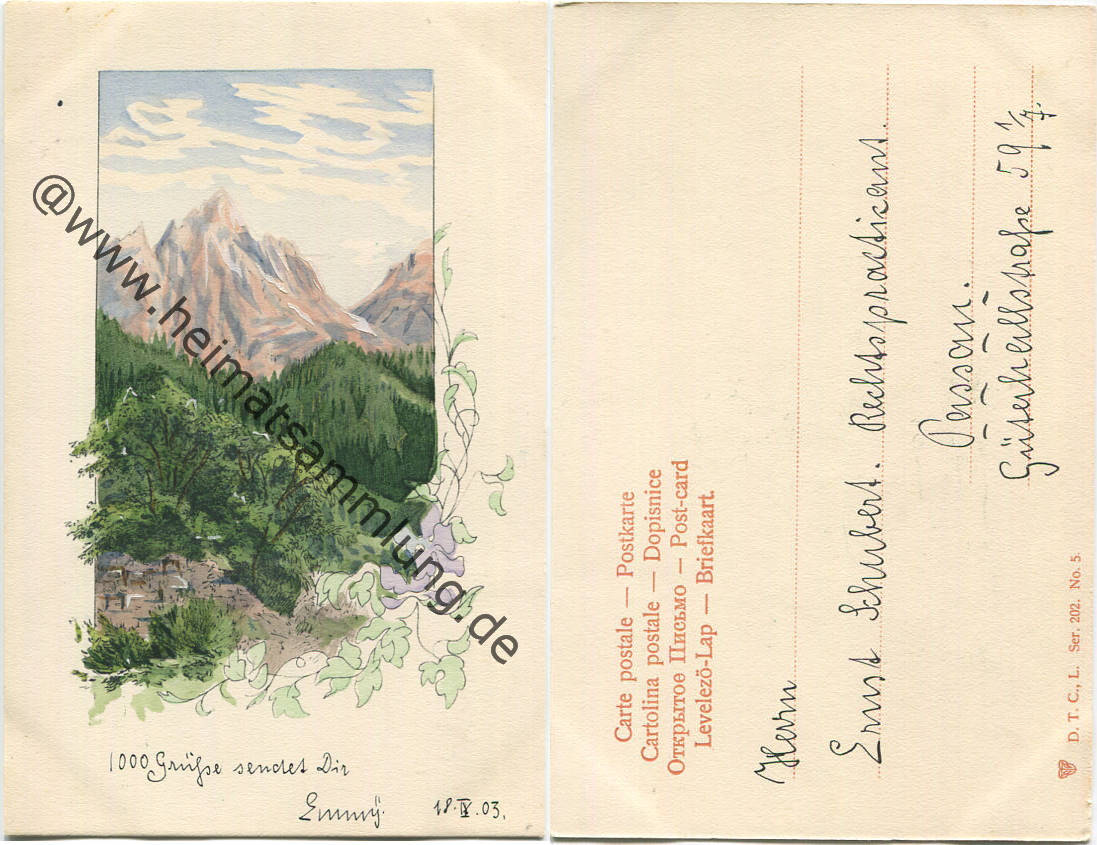 @www.heimatsammlung.de
1000 Grüße sendet Dir
Emmÿ.
18.IX.03.
Carte postale — Postkarte
Cartolina postale — Dopisnice
Открытое Письмо — Post-card
Levelezö-Lap — Briefkaart.
Herrn
Ernst Schubert. Rechtspracticant.
Passau.
59 1/7.
D. T. C., L. Ser. 202. No. 5.